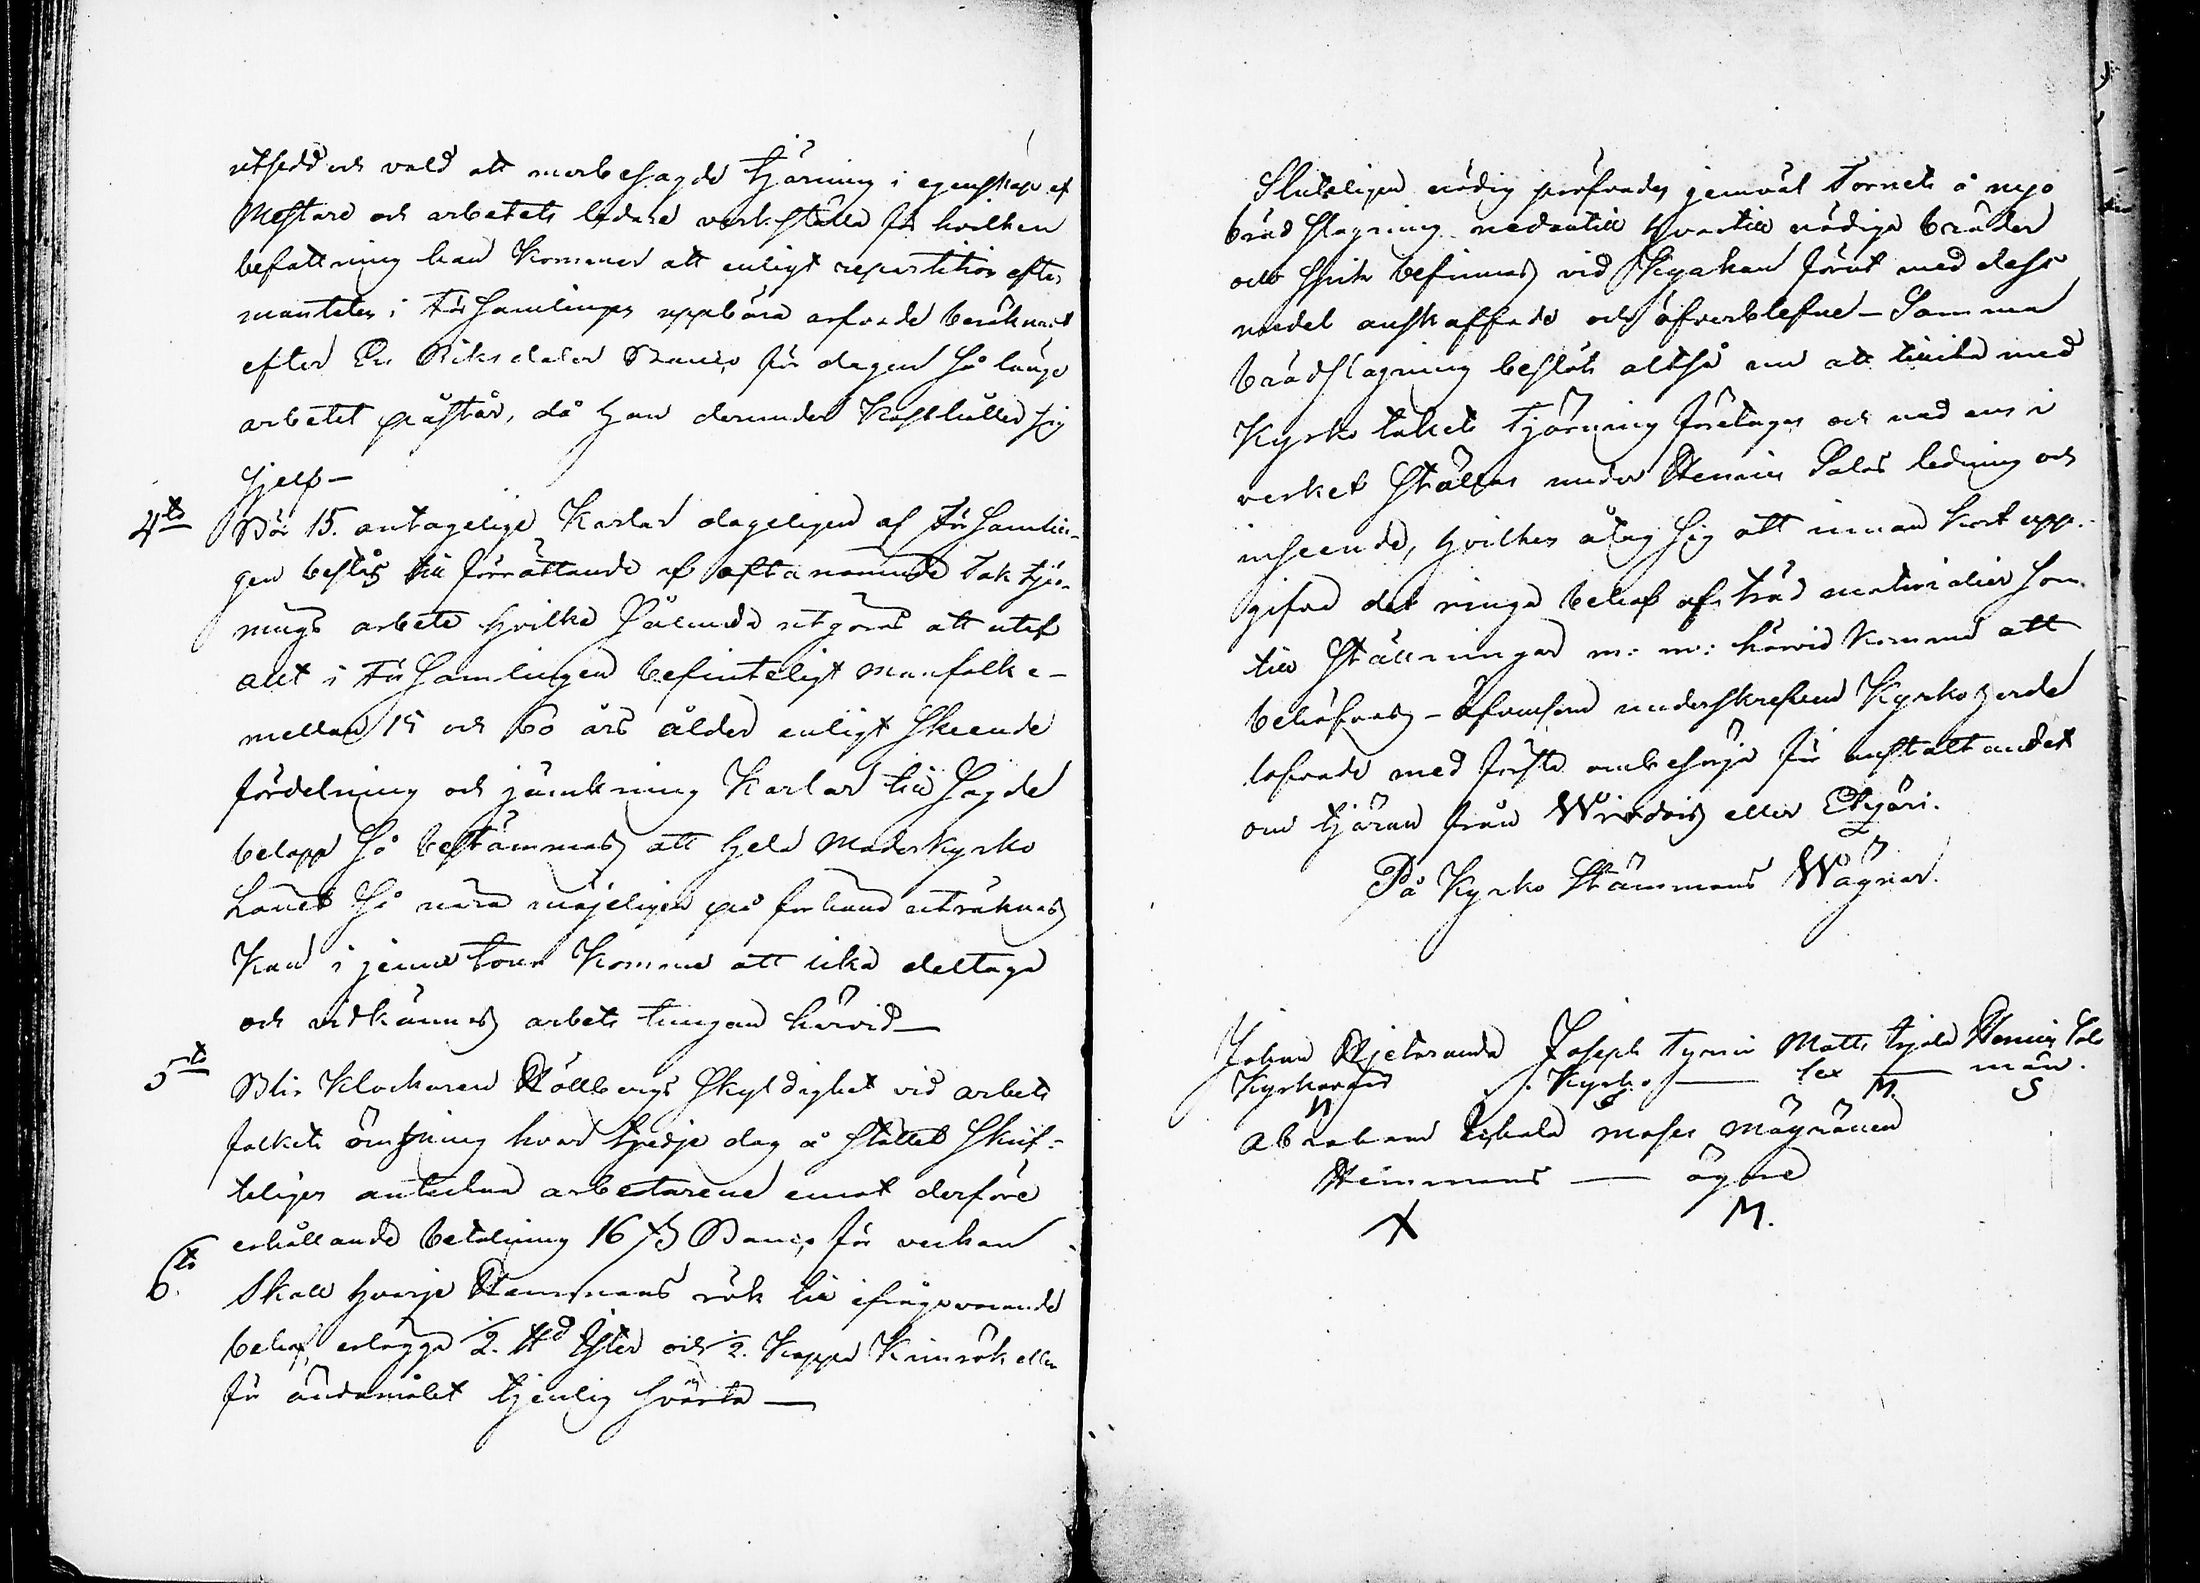 utsedd och vald att merbesagde tjärning i egenskap af
Mestare och arbetets ledare verkställa för hvilken
befattning han kommer att enligt repartition efter
mantalet i Församlingen uppbära arfvode beräknat
efter En Riksdaler Banco för dagen så länge
arbetet påstår, då han derunder kosthåller sig
sjelf –
4to Bör 15. antagelige Karlar dageligen af Församlin-
gen bestås till förrättande af oftanämnde Tak tjär-
nings arbete hvilka sålunda utgöras att utaf
allt i Församlingen befinteligt manfolk e-
mellan 15 och 60 års ålder enligt skeende
fördelning och jämkning Karlar till sagde
belopp så bestämmas att hela Moderkyrko
Laget så nära möjeligen på förhand uträknas
kan i jemn tour komma att lika deltaga
och vidkännas arbets tungan härvid –
5to Blir Klockaren Hällbergs skyldighet vid arbets
folkets ömsning hvar tredje dag å stället skrif-
teligen anteckna arbetarene emot derföre
erhållande betalning 16 ß Banco för veckan
6to Skall hvarje Hemmans rök till ifrågavarande
behof erlägga 1/2. ℔d Ister och 1/2. Kappe Kimrök eller
för ändamålet tjenlig svärta –
Slutligen nödig pröfvades jemväl Tornets å nyo
brädslagning nedantill hvartill nödige bräder
och spik befinnas vid Kyrkan förut med dess
medel anskaffade och öfverblefne – Samma
brädslagning beslöts altså nu att tillika med
Kyrko takets tjärning företagas och med ens i
verket ställas under Henric Salos ledning och
inseende, hvilken åtog sig att innan kort upp-
gifva det ringa behof af träd materialier som
till ställningar m: m: härvid komma att
behöfvas – Äfvensom underskrefven Kyrkoherde
lofvade med första ombesörja för anstaltandet
om tjäran från Wirdois eller Etzäri.
På Kyrko Stämmans Wägnar.
Johan Hjetaranda Joseph Tyrni Matts Hemric Salo
Kyrkovärd Kyrko — sex — män.
N M. S
Abraham Moses Mäyränen
Hemmans — ägare
X M.